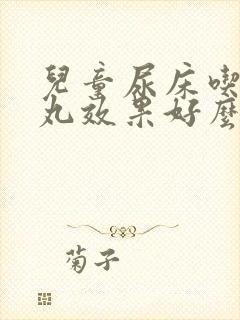 兒童尿床喫
丸效果好麼
菊子